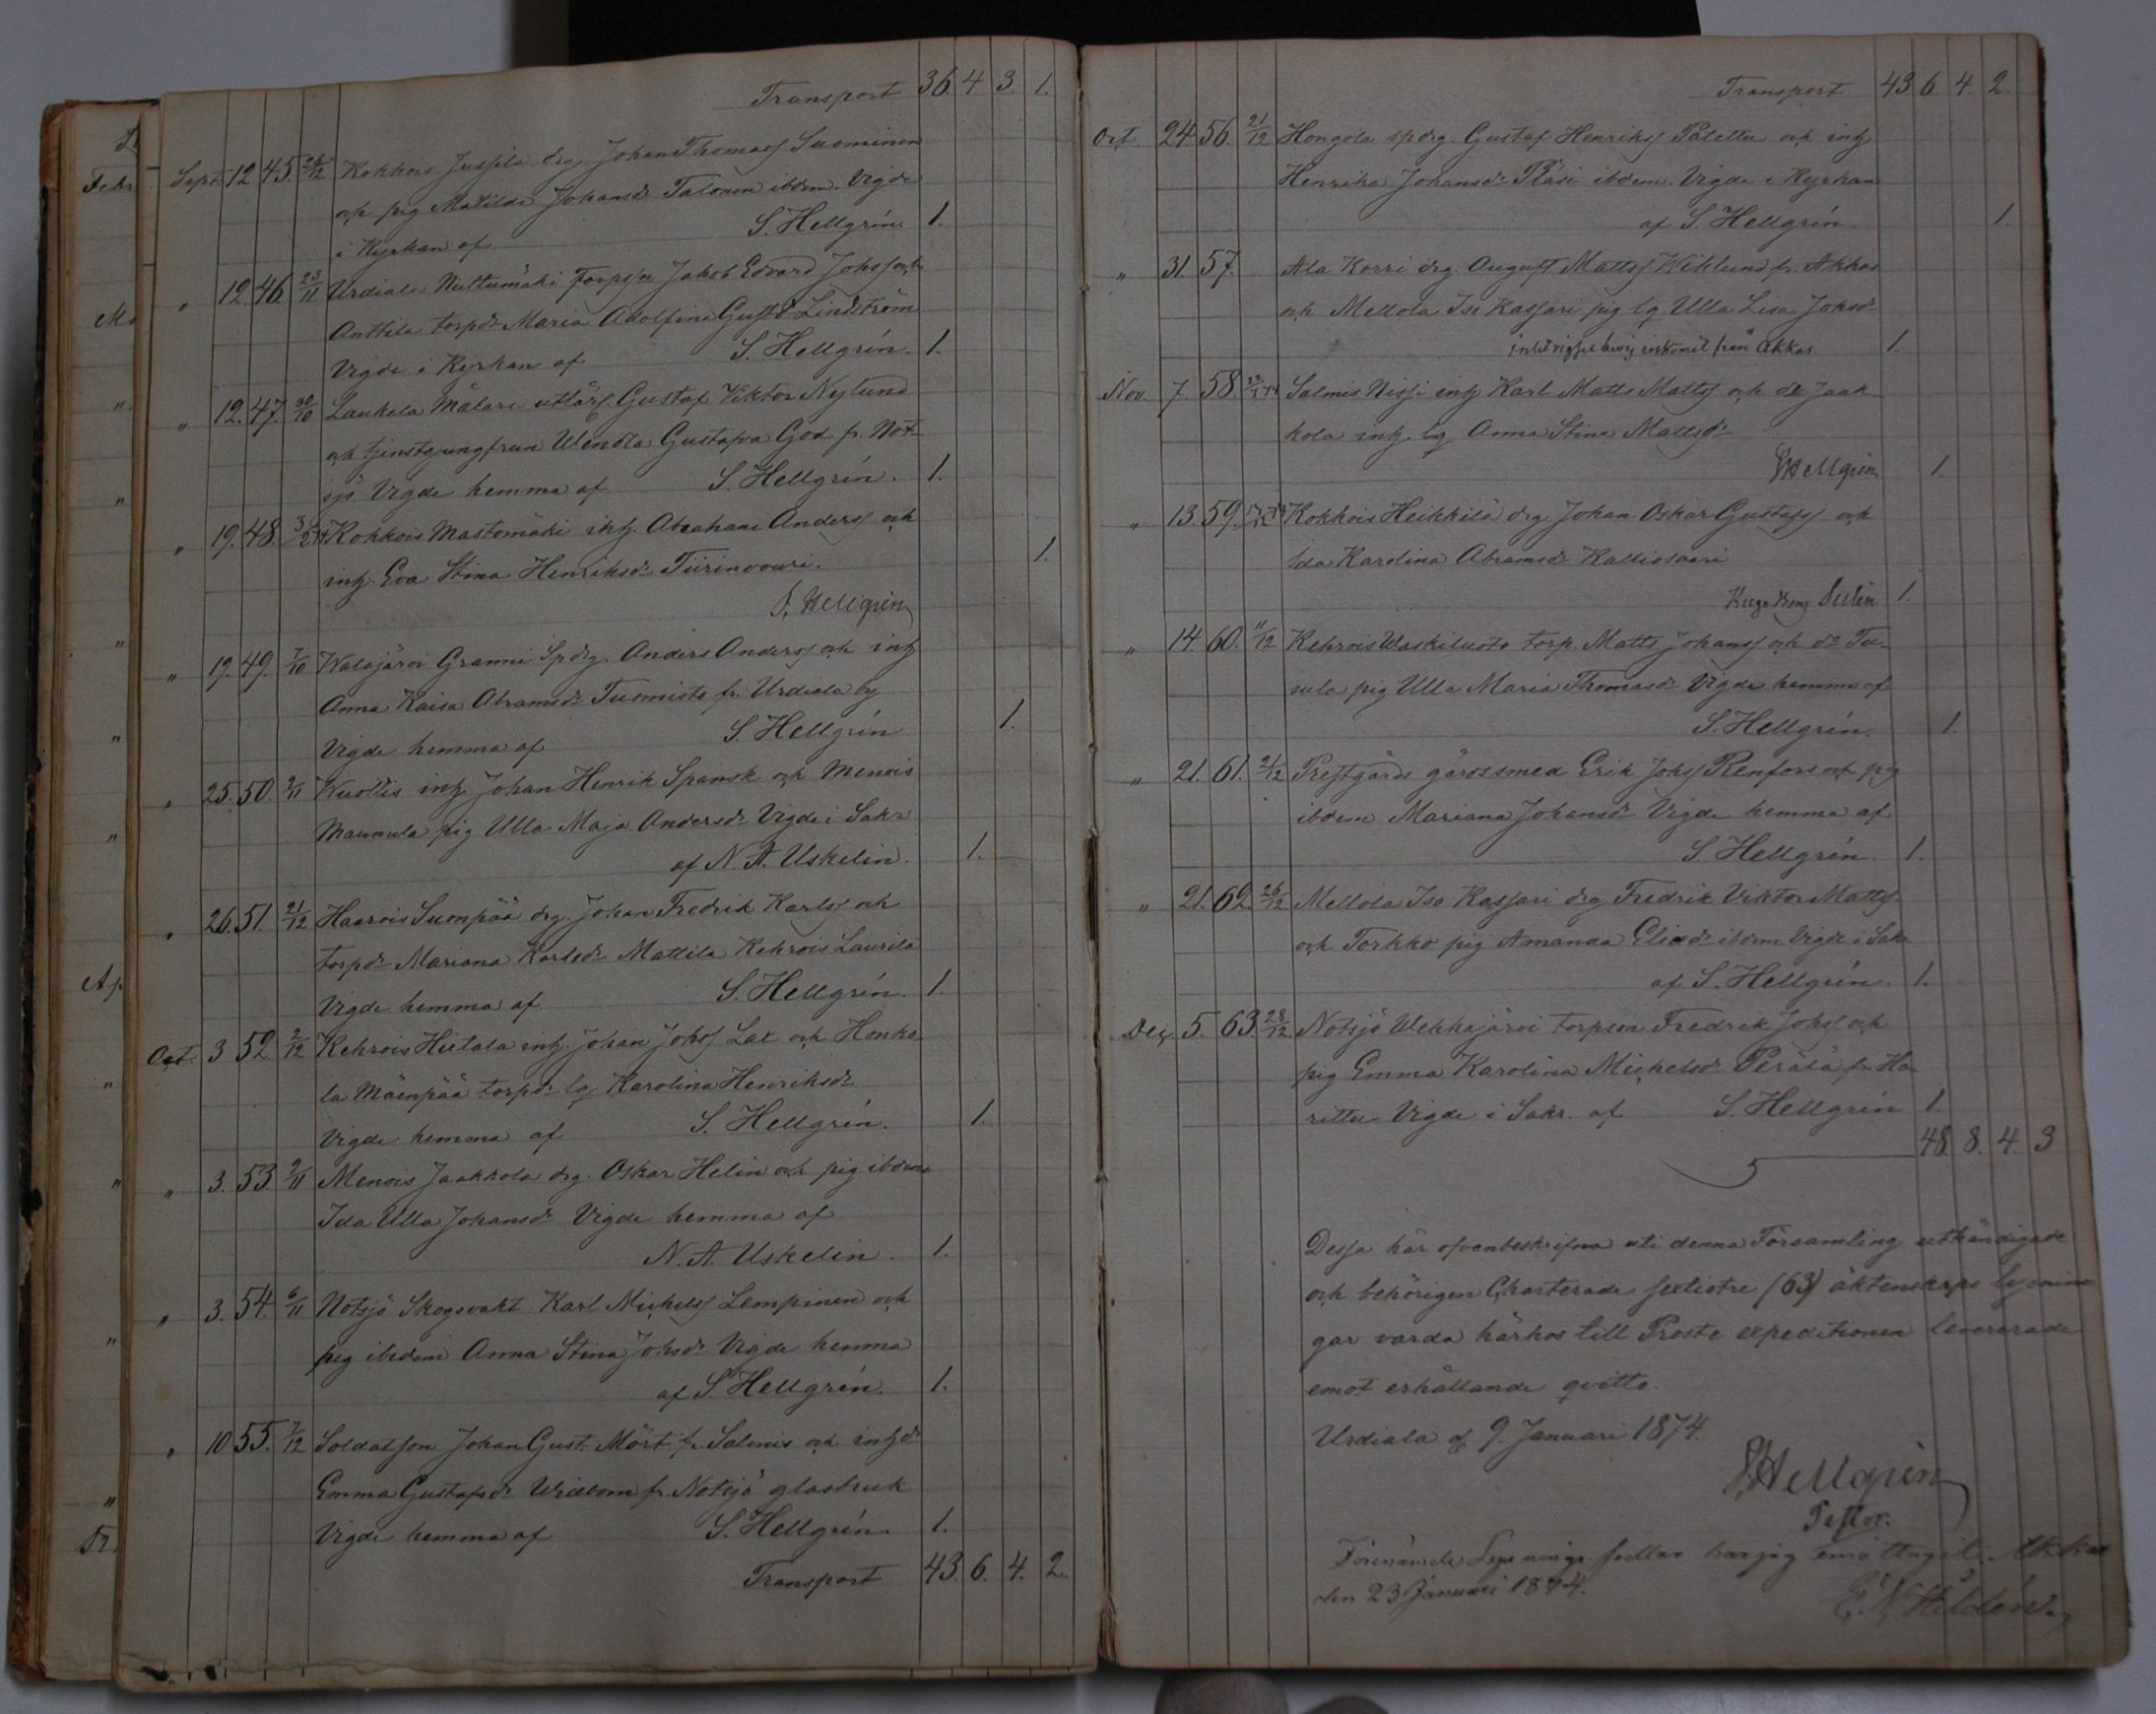 Transport 36. 4 3. 1.
Sept. 12 45. 26/12 Kokkois Jussila drg Johan Thomass Suominen
och pig Matilda Johansdr Talonen ibdem. Vigde
i Kyrkan af S. Hellgrén 1.
" 12. 46. 23/11 Urdiala Nuttumäki torpsn Jakob Edvard Johss och
Anttila torpdr Maria Adolfina Gustdr Lindström
Vigde i Kyrkan af S. Hellgrén. 1.
" 12. 47. 30/10 Laukela Målare utlärl. Gustaf Viktor Nylund
och tjenstgungfrun Wendla Gustafva God fr. Not-
sjö Vigde hemma af S. Hellgrén. 1.
" 19. 48. Kokkois Mastomäki inhs. Abraham Anderss och
inhs. Eva Stina Henriksdr Tiirinvouri. 1.
S. Hellgrén
" 19. 49. 7/10 Walajärvi Granni Spdrg Anders Anderss och inhs
Anna Kaisa Abramsdr Tuomisto fr. Urdiala by
Vigde hemma af S. Hellgrén 1.
" 25. 50. 2/11 Wuollis inhs Johan Henrik Spansk och Menois
Maunula pig Ulla Maja Andersdr Vigde i Sakr
af N. A. Uskelin. 1.
" 26. 51. 21/12 Haarois Suonpää drg. Johan Fredrik Karlss och
torpdr Mariana Karlsdr Mattila Kehrois Laurila
Vigde hemma af S. Hellgrén. 1.
Oct. 3 52. 2/12 Kehrois Hietala inhs. Johan Johss Lax och Honko
la Mäenpää torpdr lq Karolina Henriksdr
Vigde hemma af S. Hellgrén. 1.
" 3. 53. 9/11 Menois Jaakkola drg. Oskar Helin och pig ibdem
Ida Ulla Johansdr Vigde hemma af
N. A. Uskelin. 1.
" 3. 54. 6/11 Notsjö Skogsvakt Karl Michelss Lempinen och
pig ibidem Anna Stina Johsdr Vigde hemma
af S. Hellgrén. 1.
" 10 55. 7/12 Soldatson Johan Gust. Mört fr. Salmis och inhsdr
Emma Gustafsdr Widbom fr. Notsjö glasbruk
Vigde hemma af S. Hellgrén. 1.
Transport 43. 6. 4. 2.
Transport 43 6. 4 2.
Oct. 24 56. 21/12 Hongola spdrg. Gustaf Henrikss Palettu och inhs
Henrika Johansdr Pläsi ibdem. Vigde i Kyrkan
af S. Hellgrén. 1.
" 31. 57. Ala Korri drg. August Mattss Wiklund fr. Akkas
och Mellola Iso Kassari pig lq Ulla Lisa Johsdr
intet vigsel bevis inkomit från Akkas 1.
Nov. 7 58. Salmis Nissi inhs Karl Matts Mattss och dr Jaak
kola inhs. lq Anna Stina Mattsdr
SHellgrén 1.
" 13. 59. Kokkois Heikkilä drg Johan Oskar Gustafss och
Ida Karolina Abramsdr Kalliosaari
Sulin 1.
" 14 60. 11/12 Kehrois Waskiluoto torp. Matts Johanss och dr Tu-
sula pig Ulla Maria Thomasdr Vigde hemma af
S. Hellgrén. 1.
" 21. 61. 21/12 Prestgårds gårdssmed Erik Johss Renfors och pig
ibdem Mariana Johansdr Vigde hemma af
S. Hellgrén. 1.
" 21. 62. 26/12 Mellola Iso Kassari drg Fredrik Viktor Mattss
och Torkko pig Amanda Eliadr ibdem Vigde i Sakr
af S. Hellgrén. 1.
Dec. 5. 63. 28/12 Notsjö Wehkajärvi torpson Fredrik Johss och
pig Emma Karolina Michelsdr Perälä fr. Ho
rittu Vigde i Sakr. af S. Hellgrén 1.
48. 8. 4. 3
Dessa här ofvanbeskrifna uti denna Församling uthändigade
och behörigen Charterade sextiotre (63) äktenskaps lysnin
gar varda härhos till Proste expeditionen levererade
emot erhållande qvitto.
Urdiala af 9. Januari 1874.
SHellgrén
Pastor.
Förenämde Lysnings sedlar har jag emottagit. Akkas
den 23 Januari 1874.
Hildén